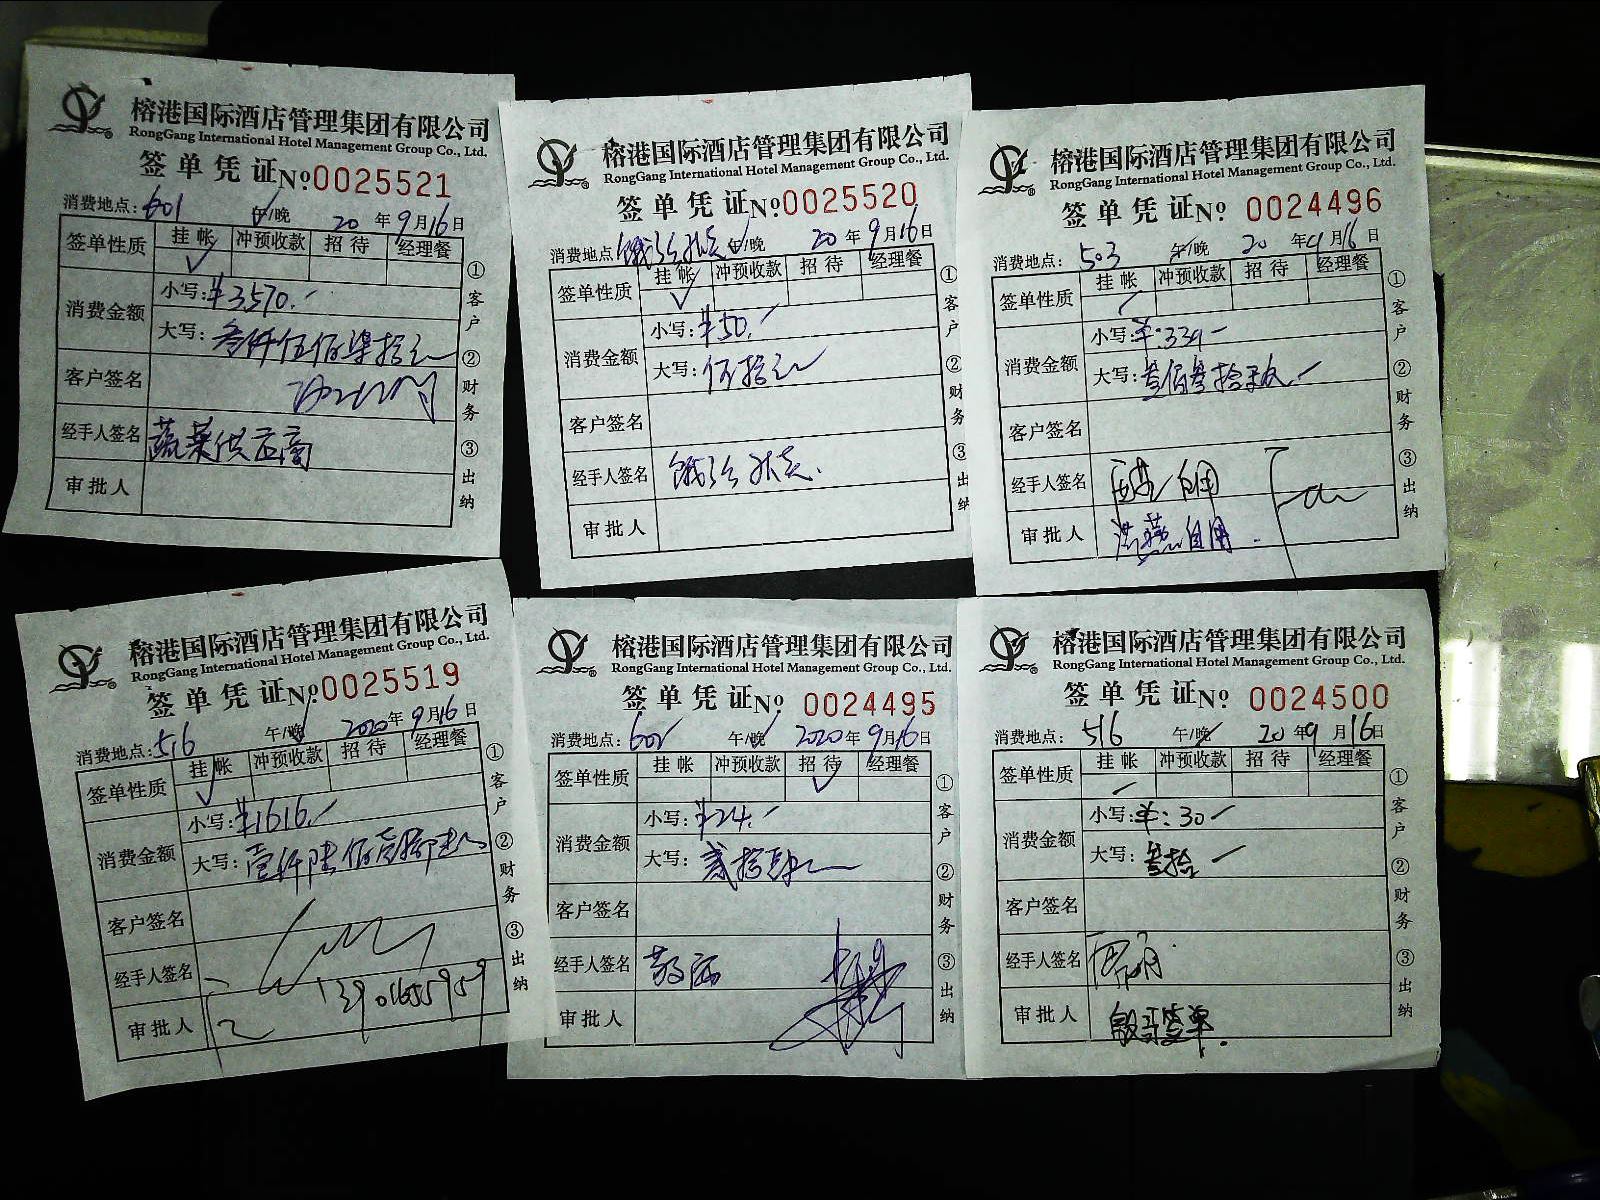 榕港国际酒店管理集团有限公司
RongGang International Hotel Management Group Co., Ltd.
签单凭证 No 0025521
消费地点: 601 午/晚 20 年 9 月 16 日
签单性质 挂帐 冲预收款 招待 经理餐
消费金额 小写: ¥3570.-
大写: 叁仟伍佰柒拾元
客户签名
经手人签名 蔬菜供应商
审批人
①客户 ②财务 ③出纳
榕港国际酒店管理集团有限公司
RongGang International Hotel Management Group Co., Ltd.
签单凭证 No 0025520
消费地点: 饿了么外卖 午/晚 20 年 9 月 16 日
签单性质 挂帐 冲预收款 招待 经理餐
消费金额 小写: ¥50.-
大写: 伍拾元
客户签名
经手人签名 饿了么外卖.
审批人
①客户 ②财务 ③出纳
榕港国际酒店管理集团有限公司
RongGang International Hotel Management Group Co., Ltd.
签单凭证 No 0024496
消费地点: 503 午/晚 20 年 9 月 16 日
签单性质 挂帐 冲预收款 招待 经理餐
消费金额 小写: ¥:339-
大写: 叁佰叁拾玖.-
客户签名
经手人签名
审批人 自用.
①客户 ②财务 ③出纳
榕港国际酒店管理集团有限公司
RongGang International Hotel Management Group Co., Ltd.
签单凭证 No 0025519
消费地点: 516 午/晚 2020 年 9 月 16 日
签单性质 挂帐 冲预收款 招待 经理餐
消费金额 小写: ¥1616.-
大写: 壹仟陆佰壹拾陆元
客户签名
经手人签名 13901655959
审批人
①客户 ②财务 ③出纳
榕港国际酒店管理集团有限公司
RongGang International Hotel Management Group Co., Ltd.
签单凭证 No 0024495
消费地点: 602 午/晚 2020 年 9 月 16 日
签单性质 挂帐 冲预收款 招待 经理餐
消费金额 小写: ¥24.-
大写: 贰拾肆元
客户签名
经手人签名
审批人
①客户 ②财务 ③出纳
榕港国际酒店管理集团有限公司
RongGang International Hotel Management Group Co., Ltd.
签单凭证 No 0024500
消费地点: 516 午/晚 20 年 9 月 16 日
签单性质 挂帐 冲预收款 招待 经理餐
消费金额 小写: ¥:30-
大写: 叁拾-
客户签名
经手人签名
审批人 签单.
①客户 ②财务 ③出纳